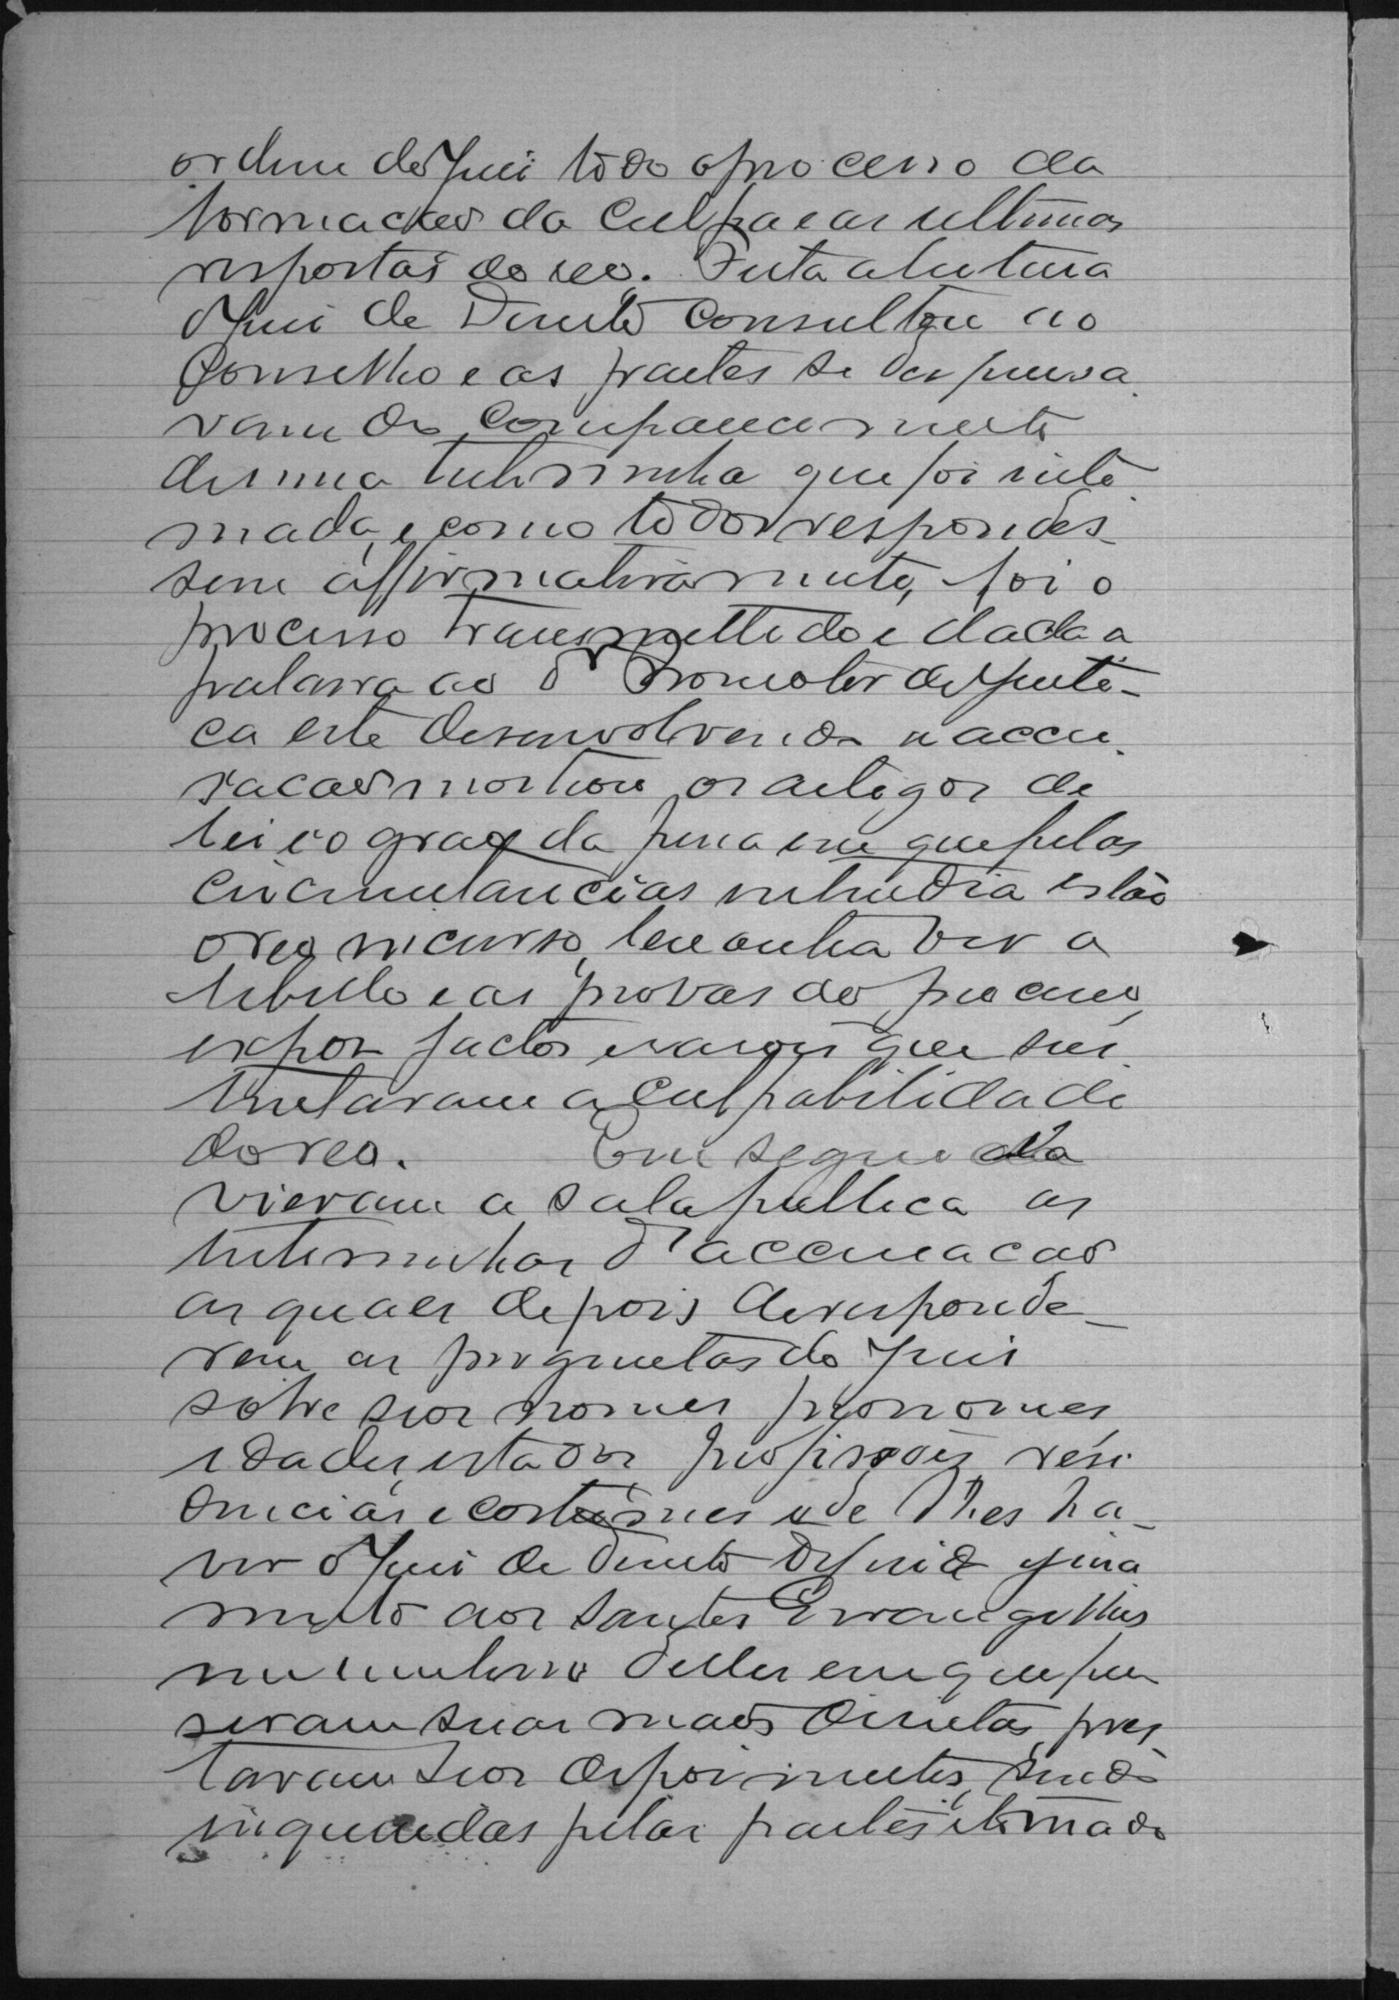 ordem do Juiz todo o processo da
formação da culpa e as ultimas
respostas do reo. Feita a leitura
o Juiz de Direito consultou ao
Conselho e as partes se dispensa
vam do comparecimento
de uma testesmunha que foi inti
mada, e como todos respondes-
sem affirmativamente, foi o
processo transmettido e dada a
palavra ao Dr Promotor de Justi-
ça este desenvolvendo a accu
sacão mostrou os artigos de
lei e o grao da pena em que pelas
circunstancias entendia estão
o reo incurso, leu outra vez o
libello e as provas do processo,
expos factos e rasois que sus
tentavam a culpabilidade
do reo. Em seguida
vieram a sala publica as
testemunhas d'accusacão
as quaes depois de responde-
rem as perguntas do Juis
sobre seos nomes pronomes
idades, estados profissois resi
dencias e costumes e de lhes ha-
ver o Juiz de Direito deferido jura
mento aos Santos Evangelhos
em um livro delles em que pu
seram suas mãos direitas, pres
taram seos depoimentos, sendo
inqueridas pelas partes e tomado